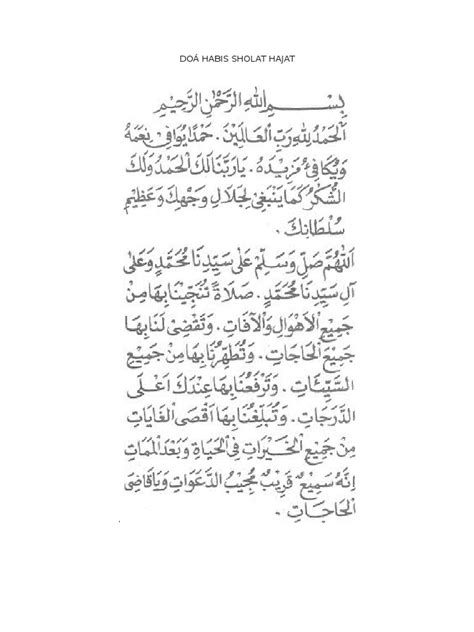 DOÁ HABIS SHOLAT HAJAT
بِسْــــــــمِ اللهِ الرَّحْمٰنِ الرَّحِيْمِ
اَلْحَمْدُ لِلّٰهِ رَبِّ الْعَالَمِيْنَ . حَمْدًا يُوَافِيْ نِعَمَهُ
وَيُكَافِئُ مَزِيْدَهُ . يَا رَبَّنَا لَكَ الْحَمْدُ وَلَكَ
الشُّكْرُ كَمَا يَنْبَغِيْ لِجَلَالِ وَجْهِكَ وَعَظِيْمِ
سُلْطَانِكَ .
اَللّٰهُمَّ صَلِّ وَسَلِّمْ عَلٰى سَيِّدِنَا مُحَمَّدٍ وَعَلٰى
آلِ سَيِّدِنَا مُحَمَّدٍ . صَلَاةً تُنَجِّيْنَا بِهَا مِنْ
جَمِيْعِ الْاَهْوَالِ وَالْآفَاتِ . وَتَقْضِيْ لَنَا بِهَا
جَمِيْعَ الْحَاجَاتِ . وَتُطَهِّرُنَا بِهَا مِنْ جَمِيْعِ
السَّيِّئَاتِ . وَتَرْفَعُنَا بِهَا عِنْدَكَ اَعْلَى
الدَّرَجَاتِ . وَتُبَلِّغُنَا بِهَا اَقْصَى الْغَايَاتِ
مِنْ جَمِيْعِ الْخَيْرَاتِ فِي الْحَيَاةِ وَبَعْدَ الْمَمَاتِ
اِنَّهُ سَمِيْعٌ قَرِيْبٌ مُجِيْبُ الدَّعَوَاتِ وَيَا قَاضِيَ
الْحَاجَاتِ .